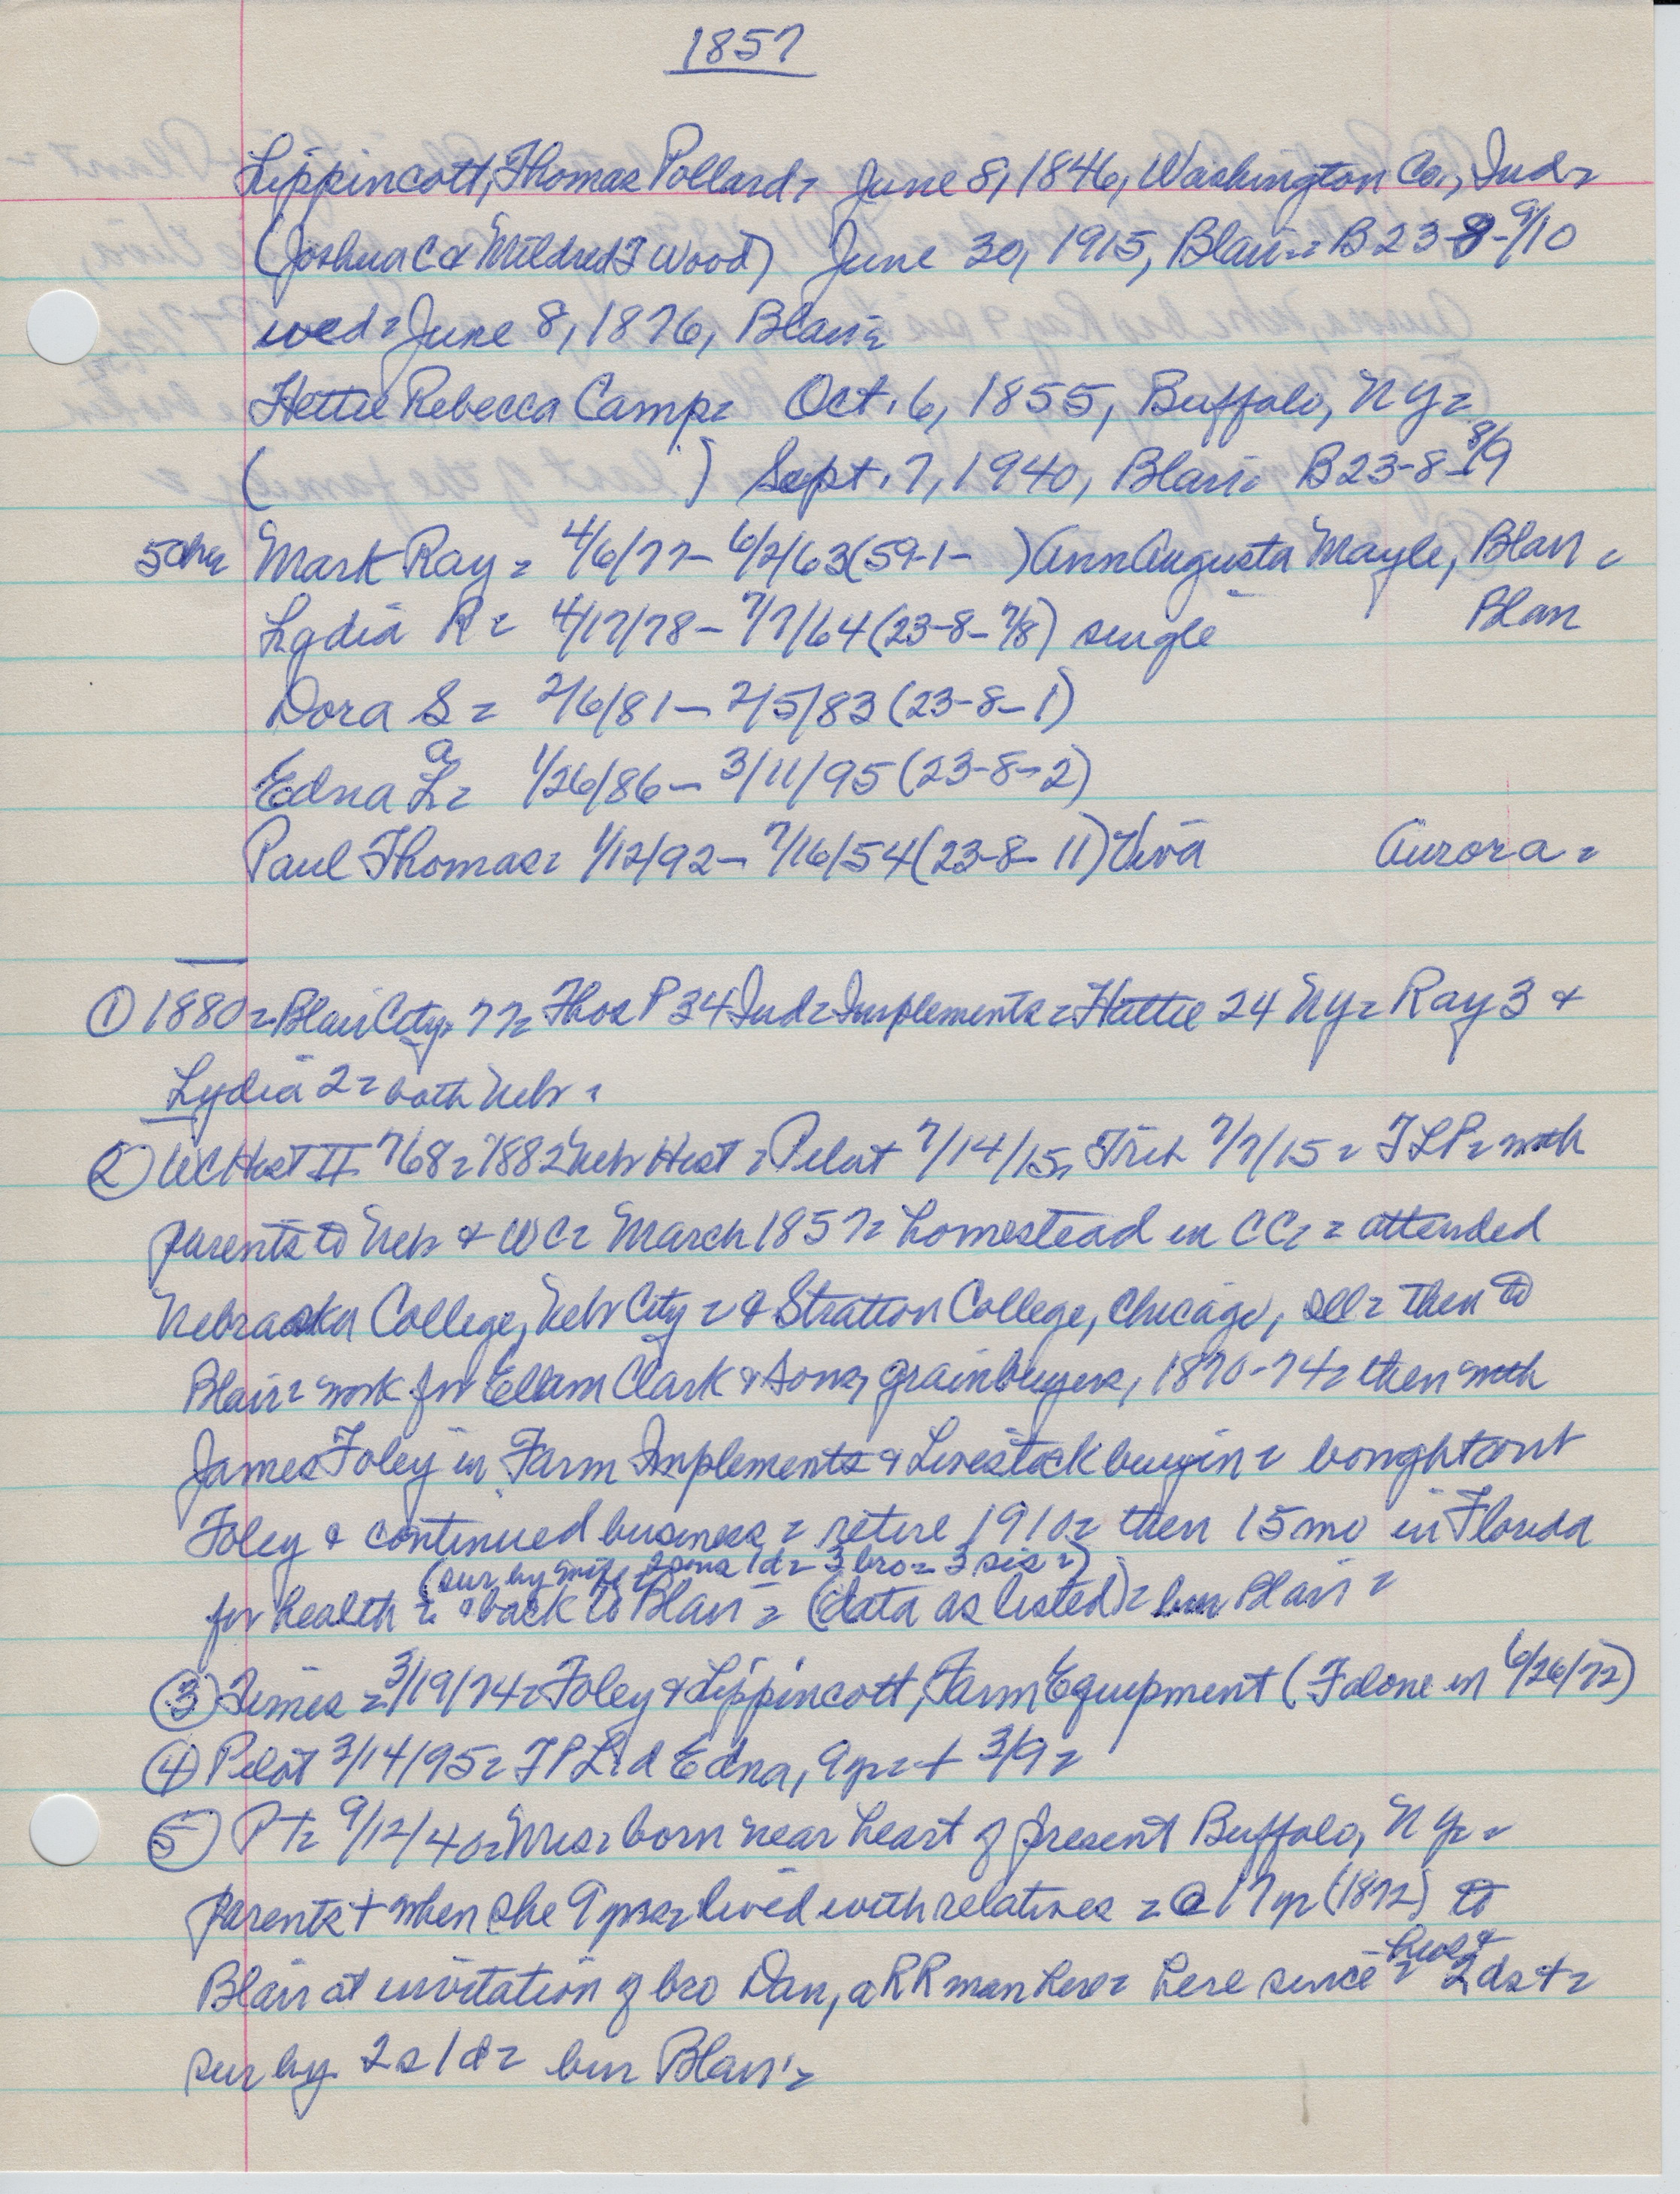 1857
Lippincott, Thomas Pollard = June 8, 1846, Washington Co., Ind =
(Joshua C & Mildred F Wood) June 30, 1915, Blair = B 23-8-9/10
wed = June 8, 1876, Blair =
Hettie Rebecca Camp = Oct. 6, 1855, Buffalo, NY =
( ) Sept. 7, 1940, Blair = B 23-8-8/9
5 chn Mark Ray = 4/6/77 - 6/2/63 (59-1- ) Ann Augusta Mayle, Blair =
Lydia R = 4/17/78 - 7/7/64 (23-8-7/8) single Blair
Dora S = 2/6/81 - 2/5/83 (23-8-1)
Edna L a = 1/26/86 - 3/11/95 (23-8-2)
Paul Thomas = 1/12/92 - 7/16/54 (23-8-11) Viva Aurora =
① 1880 = Blair City = 77 = Thos P 34 Ind = Implements = Hattie 24 NY = Ray 3 &
Lydia 2 = both Neb =
② WC Hist II 768 = 1882 Neb Hist = Pilot 7/14/15, Trib 7/7/15 = TLP = with
parents to Neb & WC = March 1857 = homestead in CC = attended
Nebraska College, Neb City = & Stratton College, Chicago, Ill = then to
Blair = work for Ellam Clark & Sons, grainbuyers, 1870-74 = then with
James Foley in Farm Implements & Livestock buyin = bought out
Foley & continued business = retire 1910 = then 15 mo in Florida
(sur by wife = 2 sons 1 d = 3 bro = 3 sis =)
for health = & back to Blair = (data as listed) = bur Blair =
③ Times = 3/19/74 = Foley & Lippincott, Farm Equipment (F alone in 6/26/72)
④ Pilot 3/14/95 = TPL = d Edna, 9 yr = + 3/9 =
⑤ PT = 9/12/40 = Mrs = born near heart of present Buffalo, NY =
parents + when she 9 yrs = lived with relatives = @ 17 yr (1872) to
Blair at invitation of bro Dan, a RR man here = here since = hus & 2 ds + =
sur by 2 s 1 d = bur Blair =